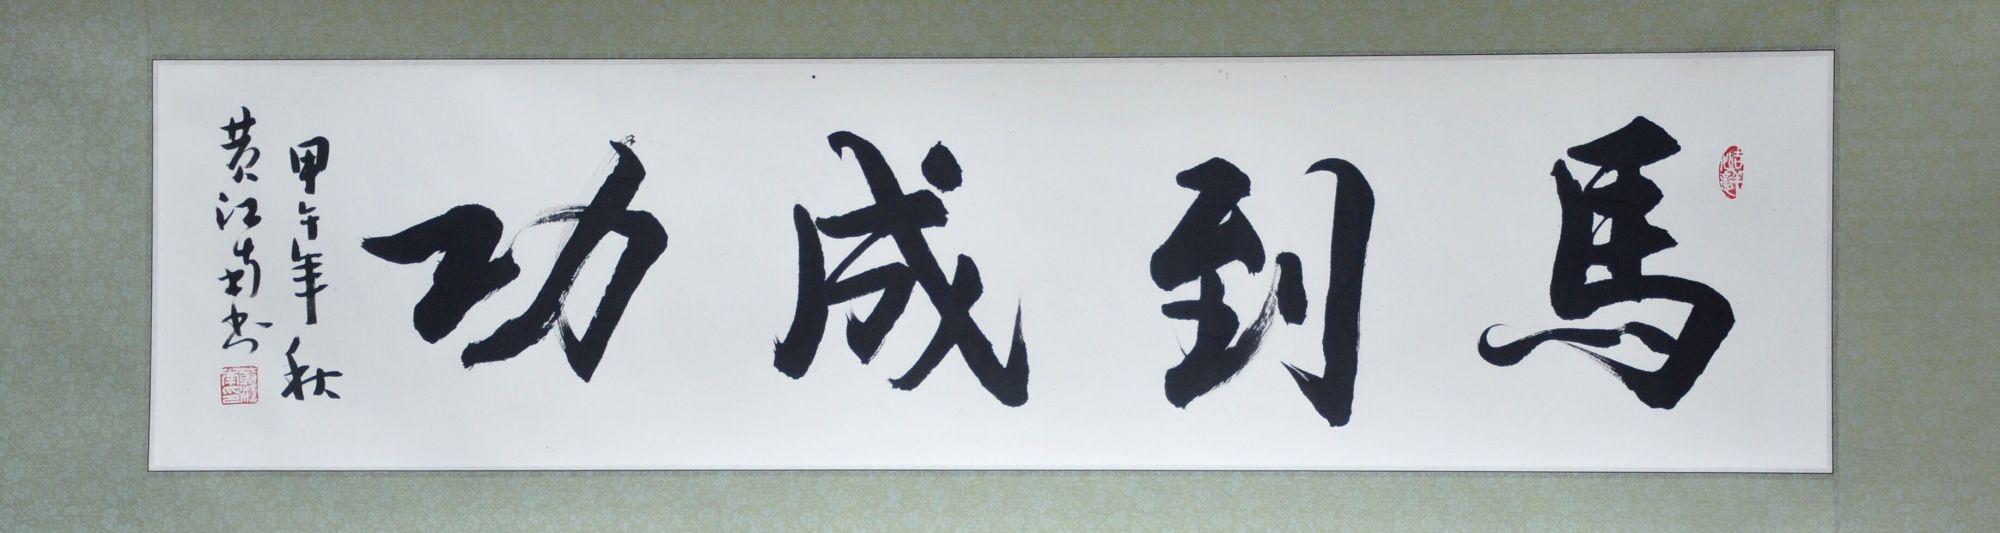 馬到成功
甲午年秋
黄江南書